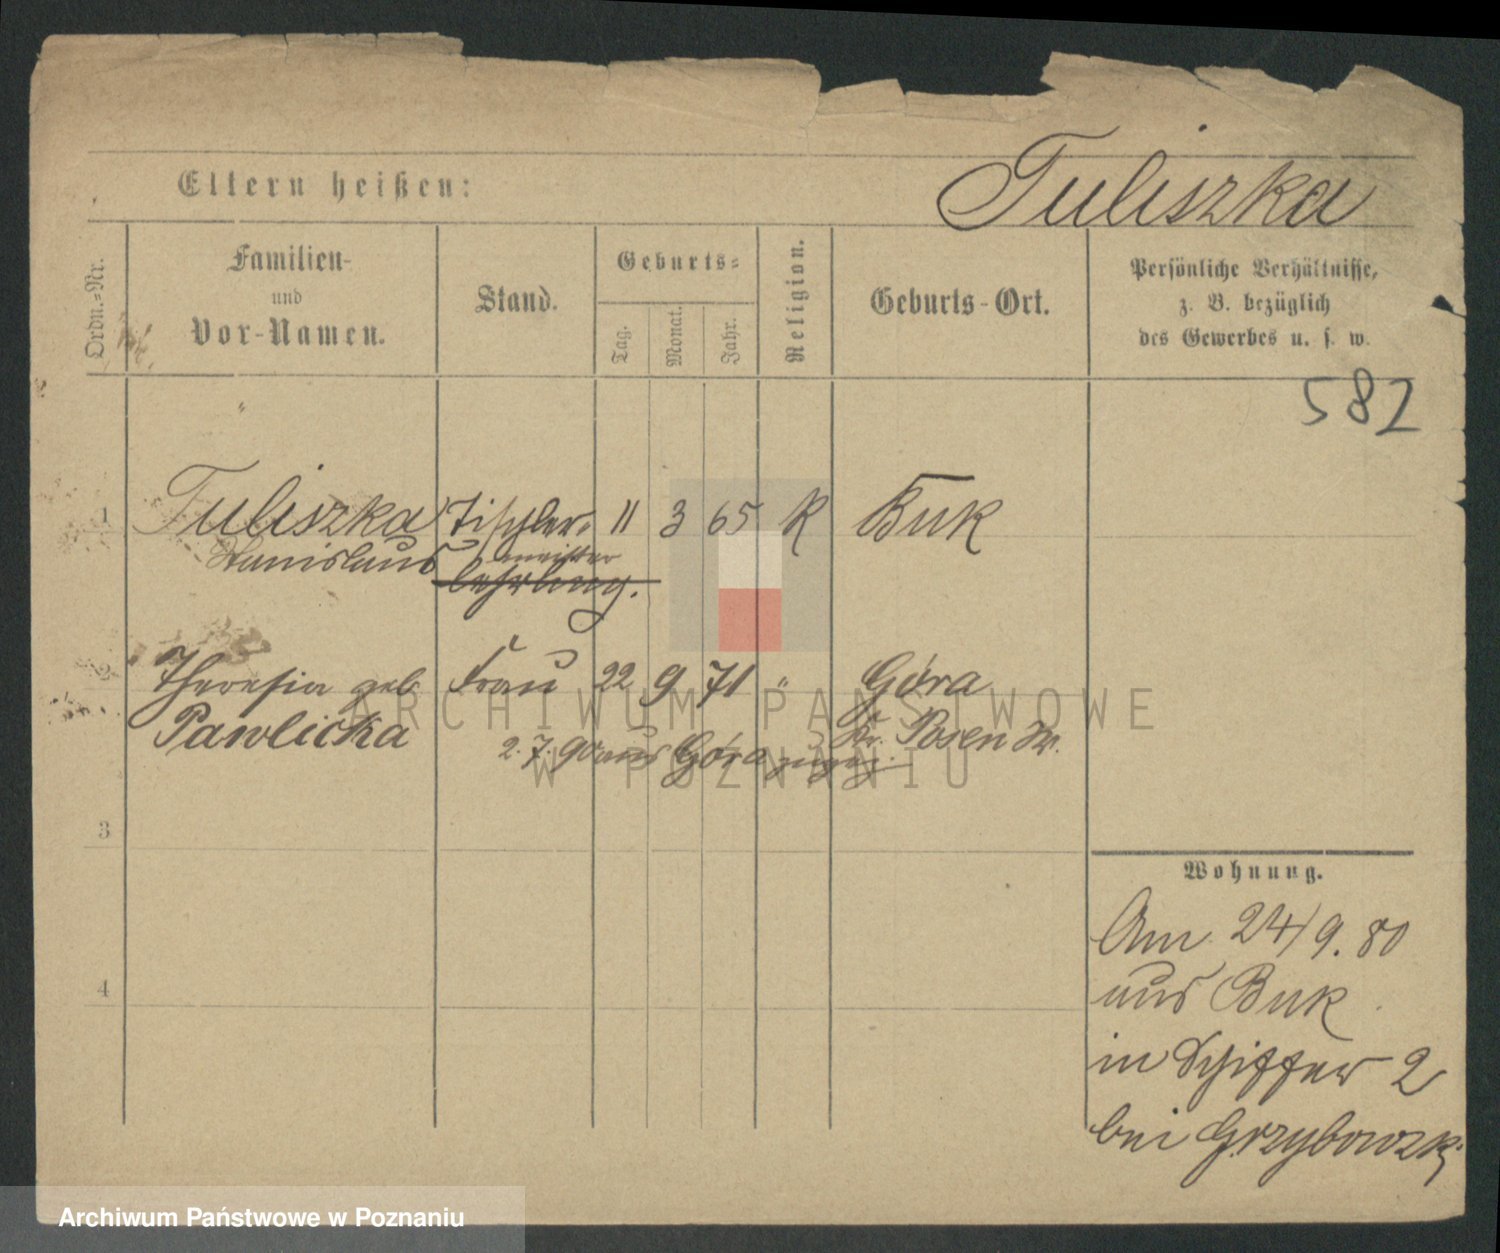 Eltern heißen:
Tuliszka
Ordn.=Nr.
Familien-
und
Vor-Namen.
Stand.
Geburts=
Tag.
Monat.
Jahr.
Religion.
Geburts-Ort.
Persönliche Verhältnisse,
z. B. bezüglich
des Gewerbes u. s. w.
582
1 Tuliszka Tischler= 11 3 65 K Buk
Stanislaus meister
lehrling.
2 Theresia geb Frau 22 9 71 " Góra
Pawlicka Kr. Posen W.
2. 7. 90 aus Góra zugez.
3
4
Wohnung.
Am 24/9. 80
aus Buk
in Schiffer 2
bei Grzybowski
ARCHIWUM PAŃSTWOWE
W POZNANIU
Archiwum Państwowe w Poznaniu